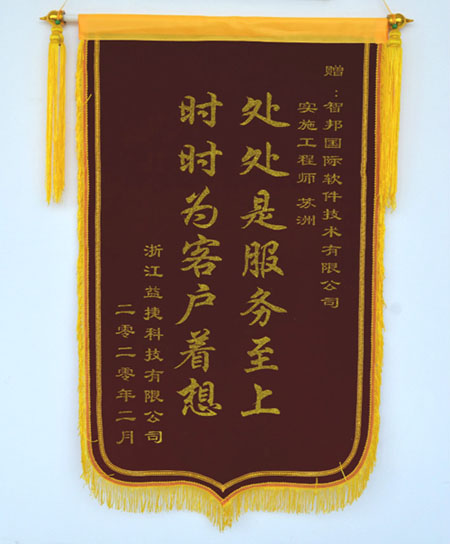 赠：智邦国际软件技术有限公司
实施工程师 苏洲
处处是服务至上
时时为客户着想
浙江益捷科技有限公司
二零二零年二月